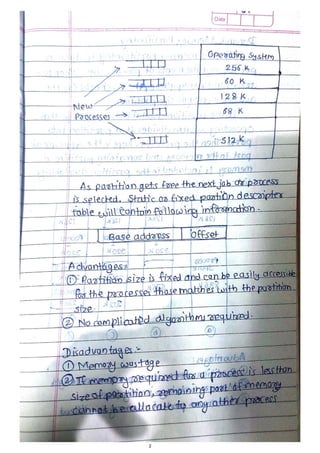 Date
Operating System
256 K
60 K
128 K
68 K
512 K
New
Processes
As partition gets free the next job or process
is selected. Static or fixed partition descripter
table will contain following information.
Base address Offset
Advantages:
① Partition size is fixed and can be easily accessible
for the processes those matches with the partition
size
② No complicated algorithms required.
Disadvantages :-
① Memory wastage
② If memory required for a process is less than
size of partition, remaining part of memory
cannot be allocate to any other process
2